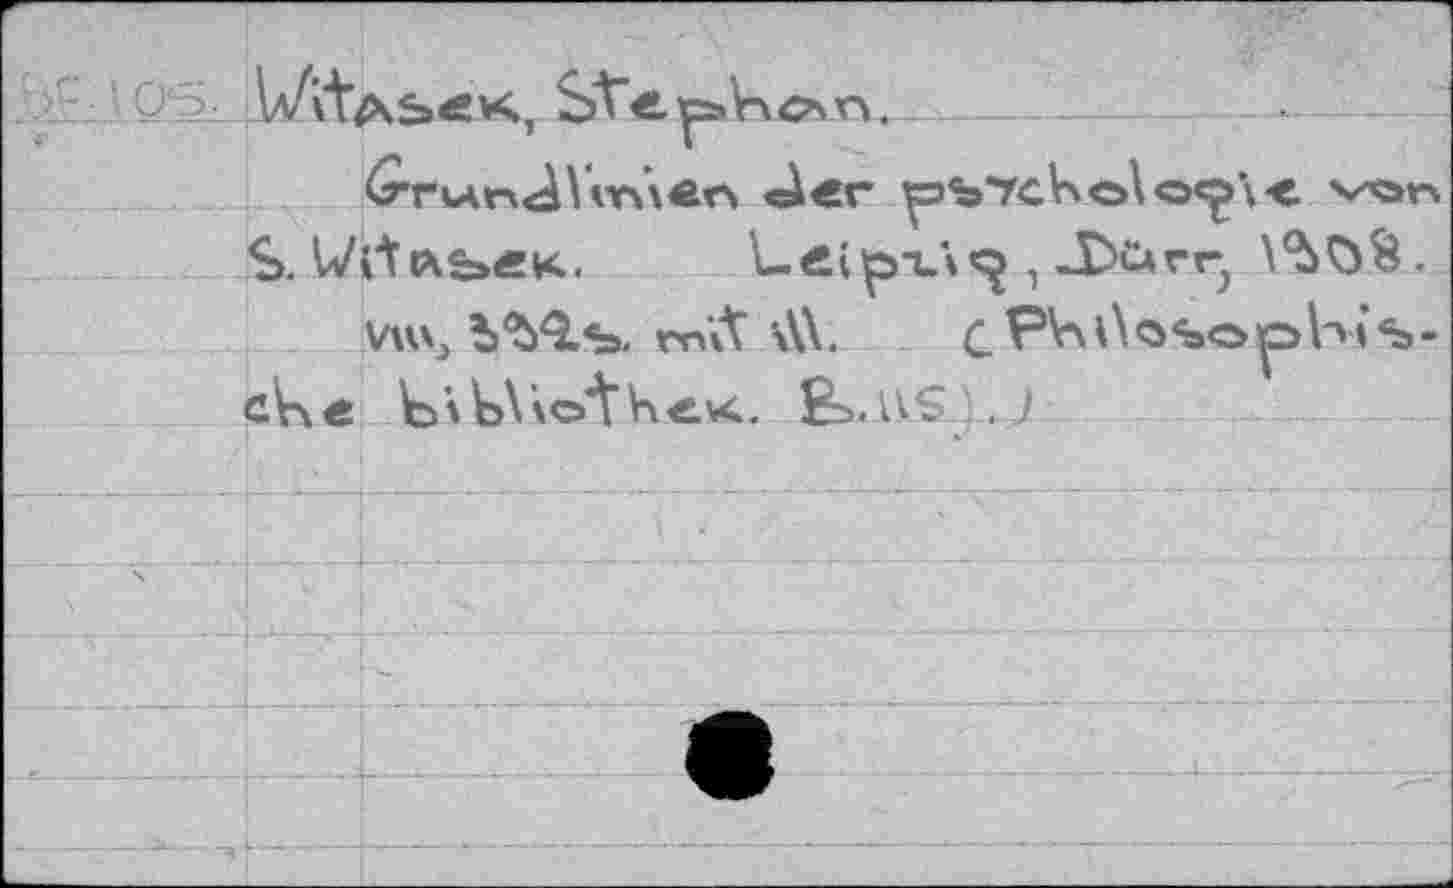 BF 105. Witasek, Stephan.
Grundlinien der psychologie von
S. Witasek. Leipzig, Dürr, 1908.
viii, 392s. mit ill. (Philosophis-
che bibliothek. B.115).)